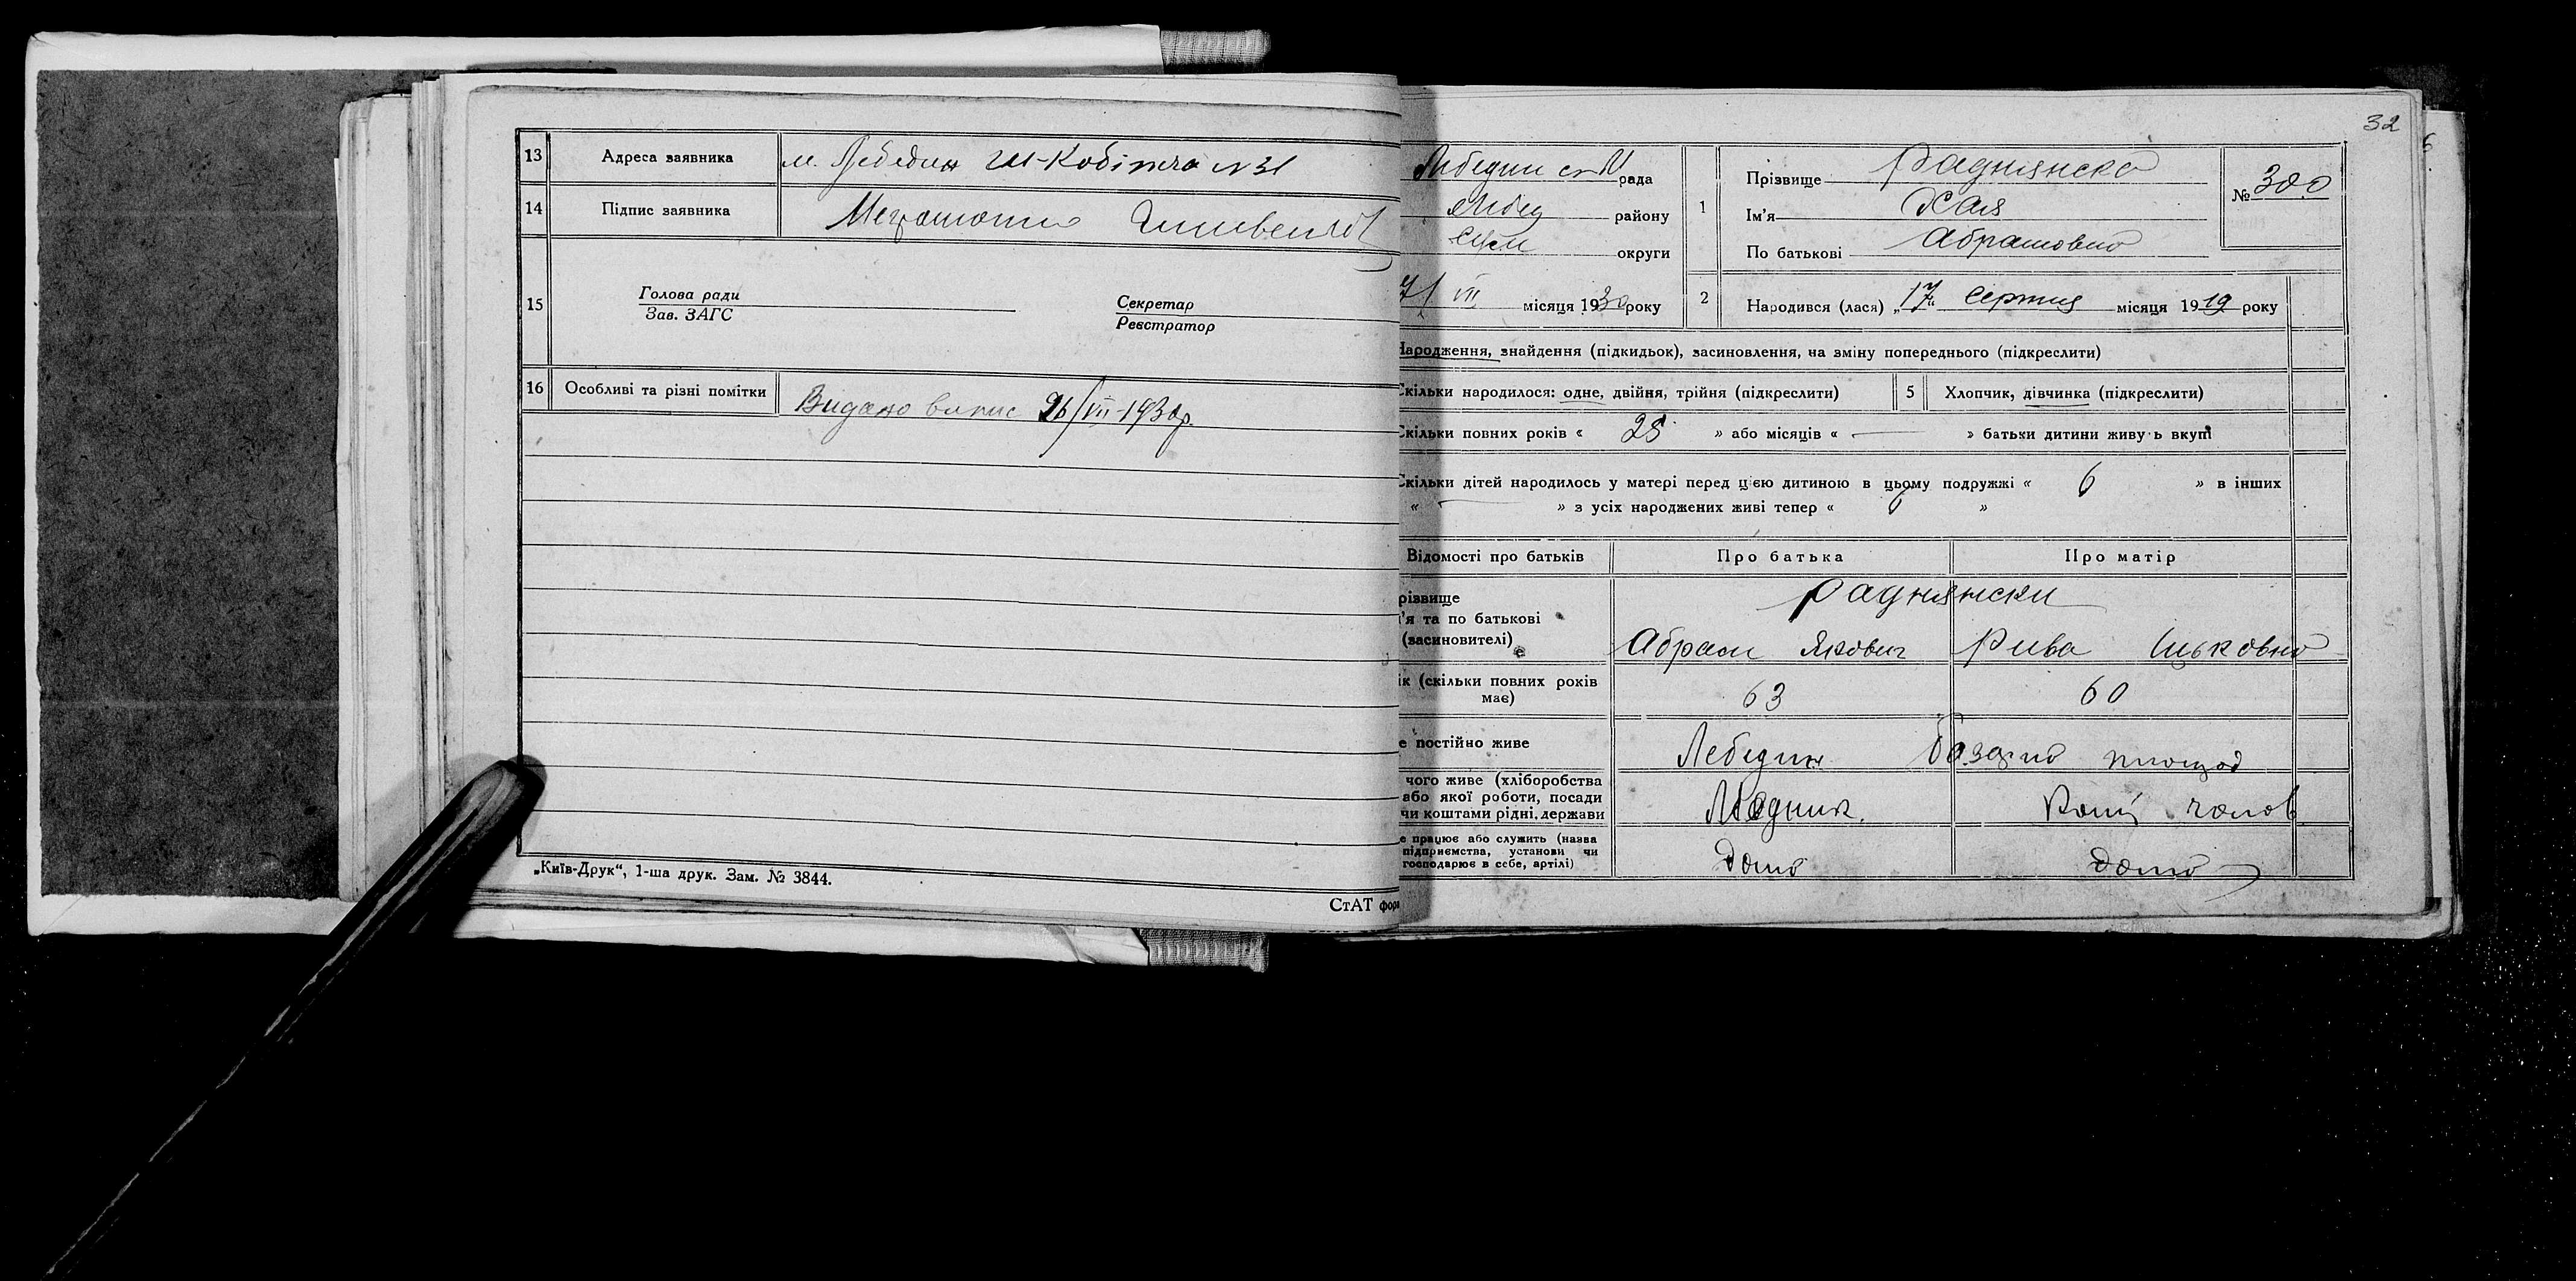 13 Адреса заявника м. Лебедин №31
14 Підпис заявника
15 Голова ради
Зав. ЗАГС
Секретар
Реєстратор
16 Особливі та різні помітки Видано випис 26/VII-1930р.
„Київ-Друк“, 1-ша друк. Зам. № 3844.
СтАТ фор
32
6
Лебедин рада
району
округи
VII місяця 1930 року
1 Прізвище Раднянска
Ім'я Хая
По батькові Абрамовна
№ 300
2 Народився (лася) „17“ серпня місяця 1919 року
Народження, знайдення (підкидьок), засиновлення, на зміну попереднього (підкреслити)
Скільки народилося: одне, двійня, трійня (підкреслити) 5 Хлопчик, дівчинка (підкреслити)
Скільки повних років « 28 » або місяців « — » батьки дитини живуть вкупі
Скільки дітей народилось у матері перед цією дитиною в цьому подружжі « 6 » в інших
« — » з усіх народжених живі тепер « 6 »
Відомості про батьків Про батька Про матір
різвище Раднянски
'я та по батькові
(засиновителі) Абрам Якович Рива Ицьковна
ік (скільки повних років 63 60
має)
е постійно живе Лебедин площад
чого живе (хліборобства
або якої роботи, посади
чи коштами рідні, держави Модник. чолов
е працює або служить (назва
підприємства, установи чи
господарює в себе, артілі) дома дома